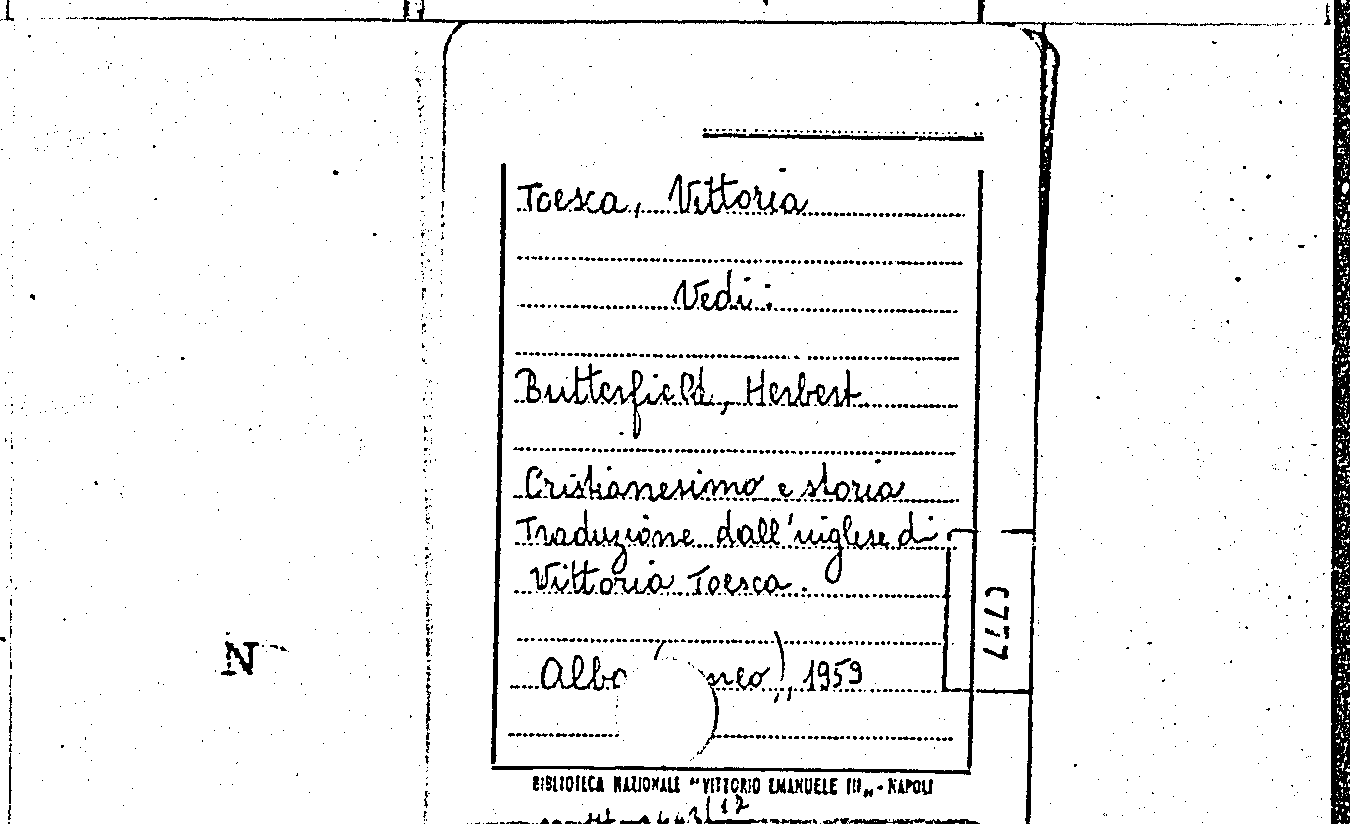 Toesca, Vittoria
Vedi:
Butterfield, Herbert
Cristianesimo e storia
Traduzione dall'inglese di
Vittoria Toesca.
Alba neo), 1959
C777
N
BIBLIOTECA NAZIONALE "VITTORIO EMANUELE III„ - NAPOLI